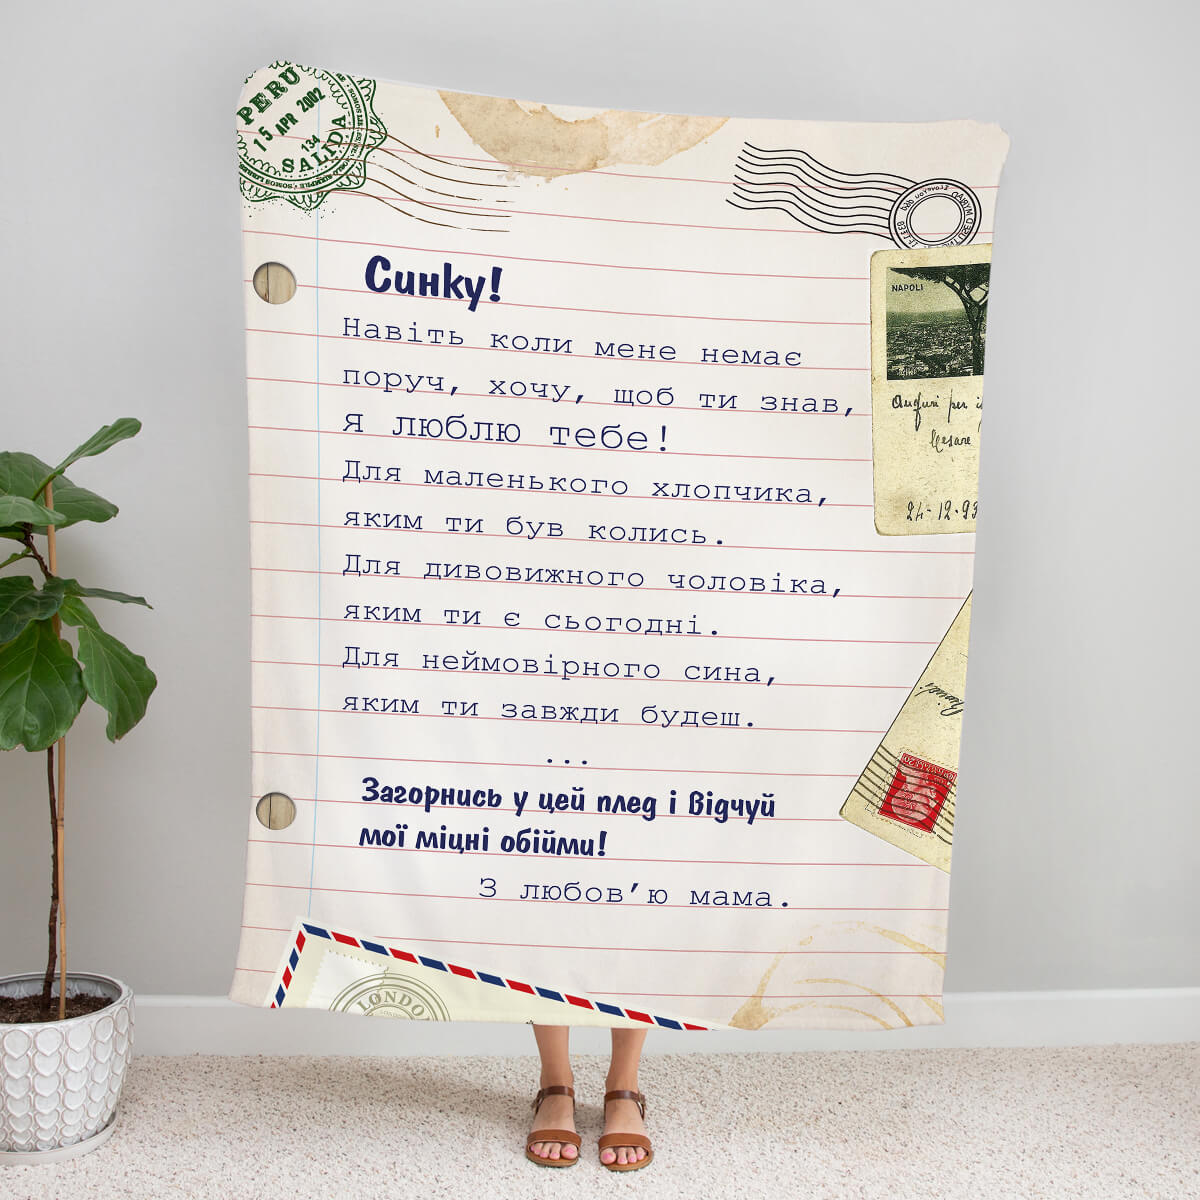 PERU
15 APR 2002
134
SALIDA
NAPOLI
Auguri per
Cesare
24-12-93
Синку!
Навіть коли мене немає
поруч, хочу, щоб ти знав,
Я люблю тебе!
Для маленького хлопчика,
яким ти був колись.
Для дивовижного чоловіка,
яким ти є сьогодні.
Для неймовірного сина,
яким ти завжди будеш.
...
Загорнись у цей плед і відчуй
мої міцні обійми!
З любов’ю мама.
LONDO